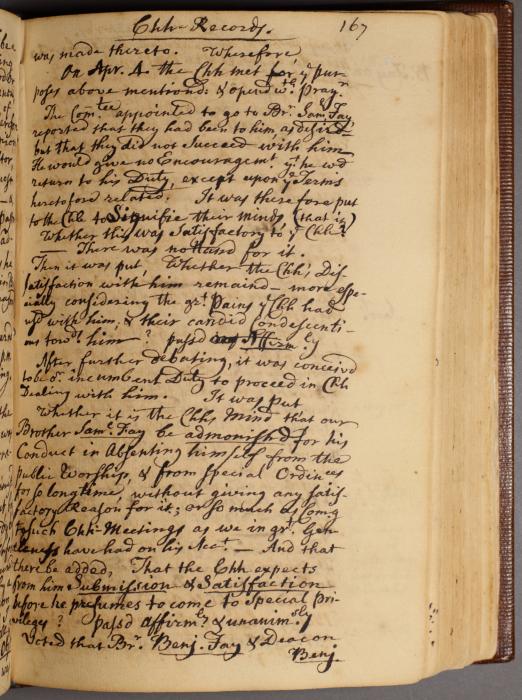 Chh Records. 167
was made thereto. Wherefore
On Apr. 4. the Chh met for yᵉ pur-
poses above mentiond: & opend wᵗʰ Prayʳ
The Comᵗᵉᵉ appointed to go to Bʳ. Samˡ Fay,
reported that they had been to him, as desird
but that they did not Succeed with him
He would give no Encouragemᵗ. yᵗ he wd
return to his Duty, except upon yᵉ Terms
heretofore related. It was therefore put
to the Chh to Signifie their minds (that is)
Whether this was Satisfactory to yᵉ Chh?
— There was no Hand for it.
Then it was put, Whether the Chh's Dis-
satisfaction with him remaind — more espe-
cially considering the grᵗ Pains yᵉ Chh had
us'd with him, & their candid Condescenti-
ons towᵈ him? pass'd Affirm:ˡy
After further debating, it was conceivd
to be oʳ. incumbent Duty to proceed in Chh
Dealing with him. It was put
Whether it is the Chhs Mind that our
Brother Samˡ. Fay be admonishd for his
Conduct in Absenting himself from the
public Worship, & from Special Ordinᶜᵉˢ
for so long time, without giving any satis-
factory Reason for it; or so much as Comᵍ
to such Chh-Meetings as we in grᵗ. Gen
tleness have had on his Accᵗ. — And that
there be added, That the Chh expects
from him Submission & Satisfaction
before he presumes to come to Special Pri-
vileges? Pass'd affirmˡʸ & unanim:ˢˡʸ
Voted that Bʳ. Benj. Fay & Deacon
Benj.